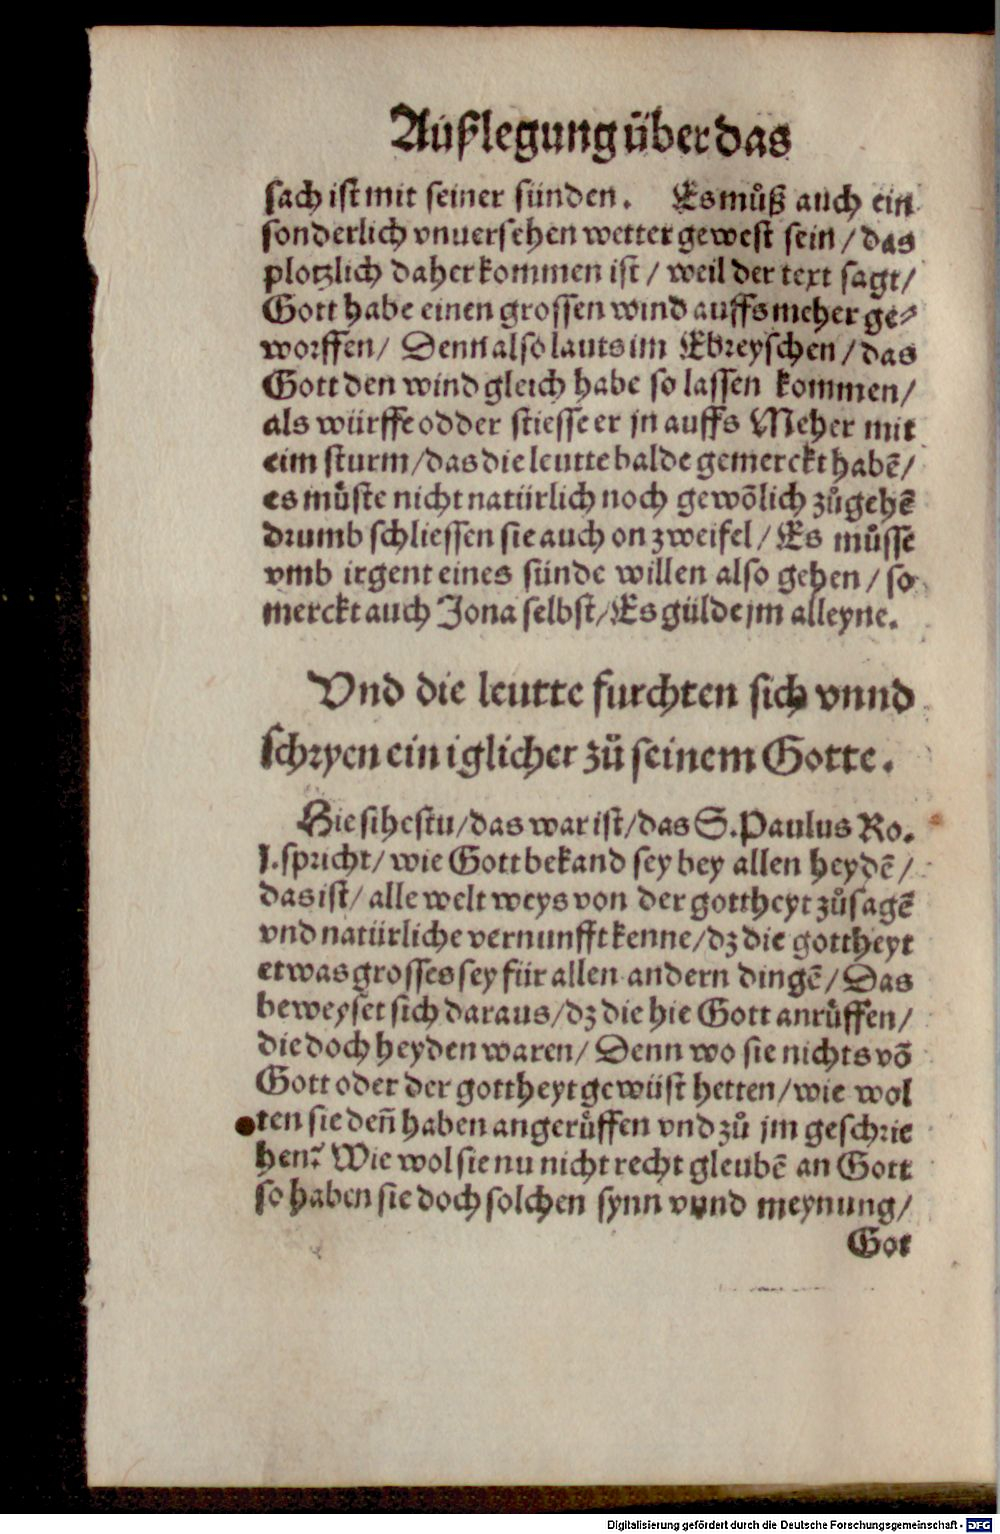 Außlegung über das
sach ist mit seiner sünden. Es müß auch ein
sonderlich vnuersehen wetter gewest sein / das
plotzlich daher kommen ist / weil der text sagt /
Gott habe einen grossen wind auffs meher ge-
worffen / Denn also lauts im Ebreyschen / das
Gott den wind gleich habe so lassen kommen /
als würffe odder stiesse er jn auffs Meher mit
eim sturm / das die leutte balde gemerckt habē /
es müste nicht natürlich noch gewõlich zůgehē
drumb schliessen sie auch on zweifel / Es můsse
vmb irgent eines sünde willen also gehen / so
merckt auch Jona selbst / Es gülde jm alleyne.
Vnd die leutte furchten sich vnnd
schryen ein iglicher zů seinem Gotte.
Hie sihestu / das war ist / das S. Paulus Ro.
1. spricht / wie Gott bekand sey bey allen heydē /
das ist / alle welt weys von der gottheyt zůsagē
vnd natürliche vernunfft kenne / dz die gottheyt
etwas grosses sey für allen andern dingē / Das
beweyset sich daraus / dz die hie Gott anrůffen /
die doch heyden waren / Denn wo sie nichts võ
Gott oder der gottheyt gewüst hetten / wie wol
ten sie deñ haben angerůffen vnd zů jm geschrie
hen? Wie wol sie nu nicht recht gleubē an Gott
so haben sie doch solchen synn vnnd meynung /
Got
Digitalisierung gefördert durch die Deutsche Forschungsgemeinschaft - DFG